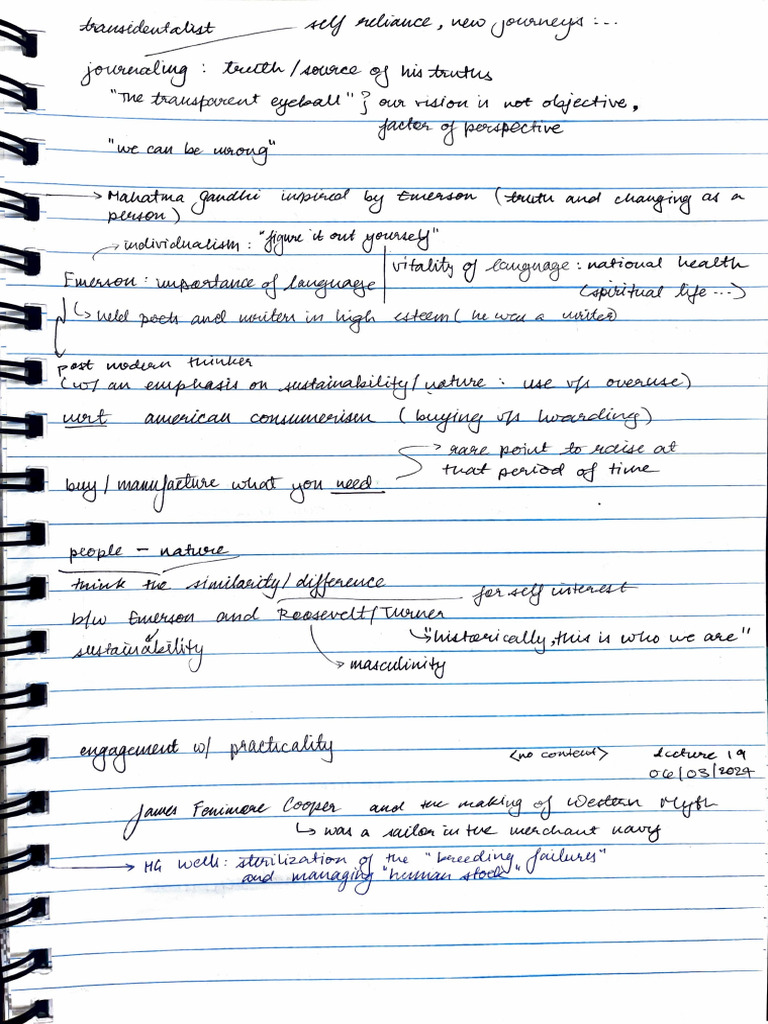 transidentalist — self reliance, new journeys ...
journaling : truth / source of his truths
"The transparent eyeball" } our vision is not objective,
factor of perspective
"we can be wrong"
→ Mahatma Gandhi inspired by Emerson ( truth and changing as a
person )
→ individualism : "figure it out yourself"
Emerson : importance of language | vitality of language : national health
(spiritual life ...)
↳ held poets and writers in high esteem ( he was a writer)
post modern thinker
(w/ an emphasis on sustainability / nature : use v/s overuse)
wrt american consumerism ( buying v/s hoarding)
→ rare point to raise at
that period of time
buy / manufacture what you need
people — nature
think the similarity / difference
for self interest
b/w Emerson and Roosevelt / Turner
sustainability
↳ "historically, this is who we are"
→ masculinity
engagement w/ practicality
<no content> lecture 19
06/03/2024
James Fenimore Cooper and the making of Western Myth
↳ was a sailor in the merchant navy
→ HG Wells : sterilization of the "breeding failures"
and managing "human stock"